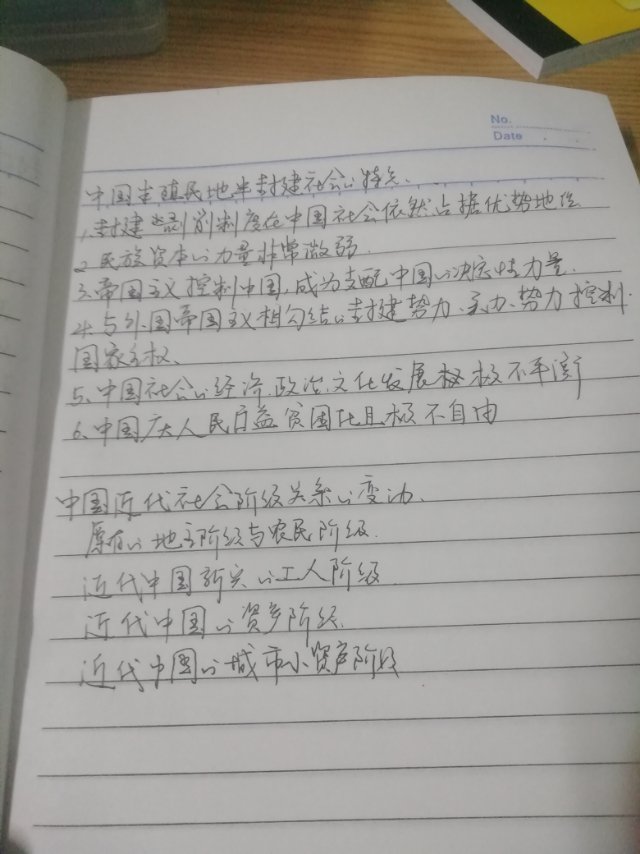 No.
Date
中国半殖民地半封建社会的特点.
1.封建剥削制度在中国社会依然占据优势地位
2.民族资本的力量非常微弱.
3.帝国主义控制中国,成为支配中国的决定性力量.
4.与外国帝国主义相勾结的封建势力、买办势力控制
国家主权、
5、中国社会的经济、政治、文化发展极极不平衡
6、中国广大人民日益贫困化且极不自由
中国近代社会阶级关系的变动.
原有的地主阶级与农民阶级.
近代中国新兴的工人阶级
近代中国的资产阶级.
近代中国的城市小资产阶级